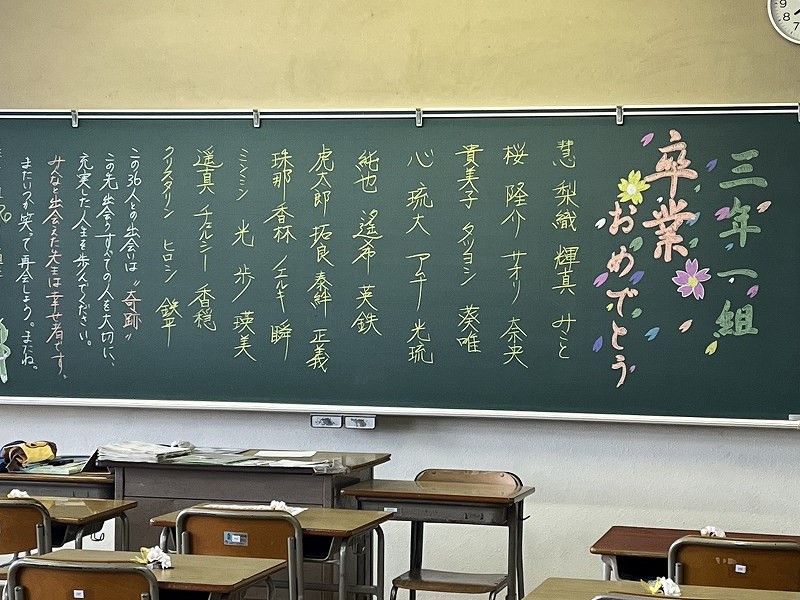 三年一組
卒業
おめでとう
慧 梨織 輝真 みこと
桜 隆介 サオリ 奈央
貴美子 タツヨシ 葵唯
心 琉大 アチナ 光琉
純也 遙希 英鉄
虎太郎 拓良 泰絆 正義
珠那 香林 ノエルキ 瞬
ミンミン 光 歩 瑛美
遥真 チェルシー 香穂
クリスタリン ヒロシ 鉄平
この36人との出会いは〝奇跡〟
この先 出会うすべての人を大切に、
充実した人生を歩んでください。
みんなと出会えた先生は幸せ者です。
またいつか笑って再会しよう。またね。
9
8
7